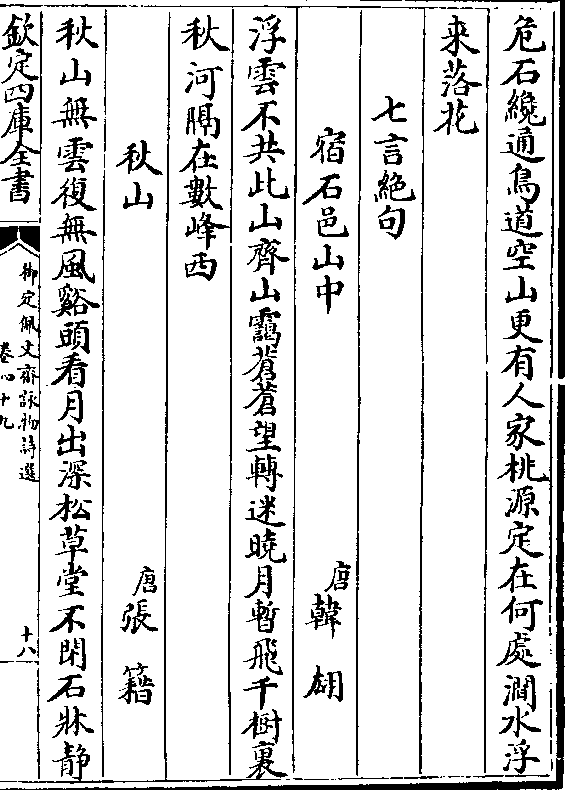 危石纔通鳥道空山更有人家桃源定在何處澗水浮
来落花
七言絶句
宿石邑山中 唐韓翃
浮雲不共此山齊山靄蒼蒼望轉迷曉月暫飛千樹裏
秋河隔在數峰西
秋山 唐張籍
秋山無雲復無風谿頭看月出深松草堂不閉石牀静
欽定四庫全書
御定佩文齋詠物詩選
十八